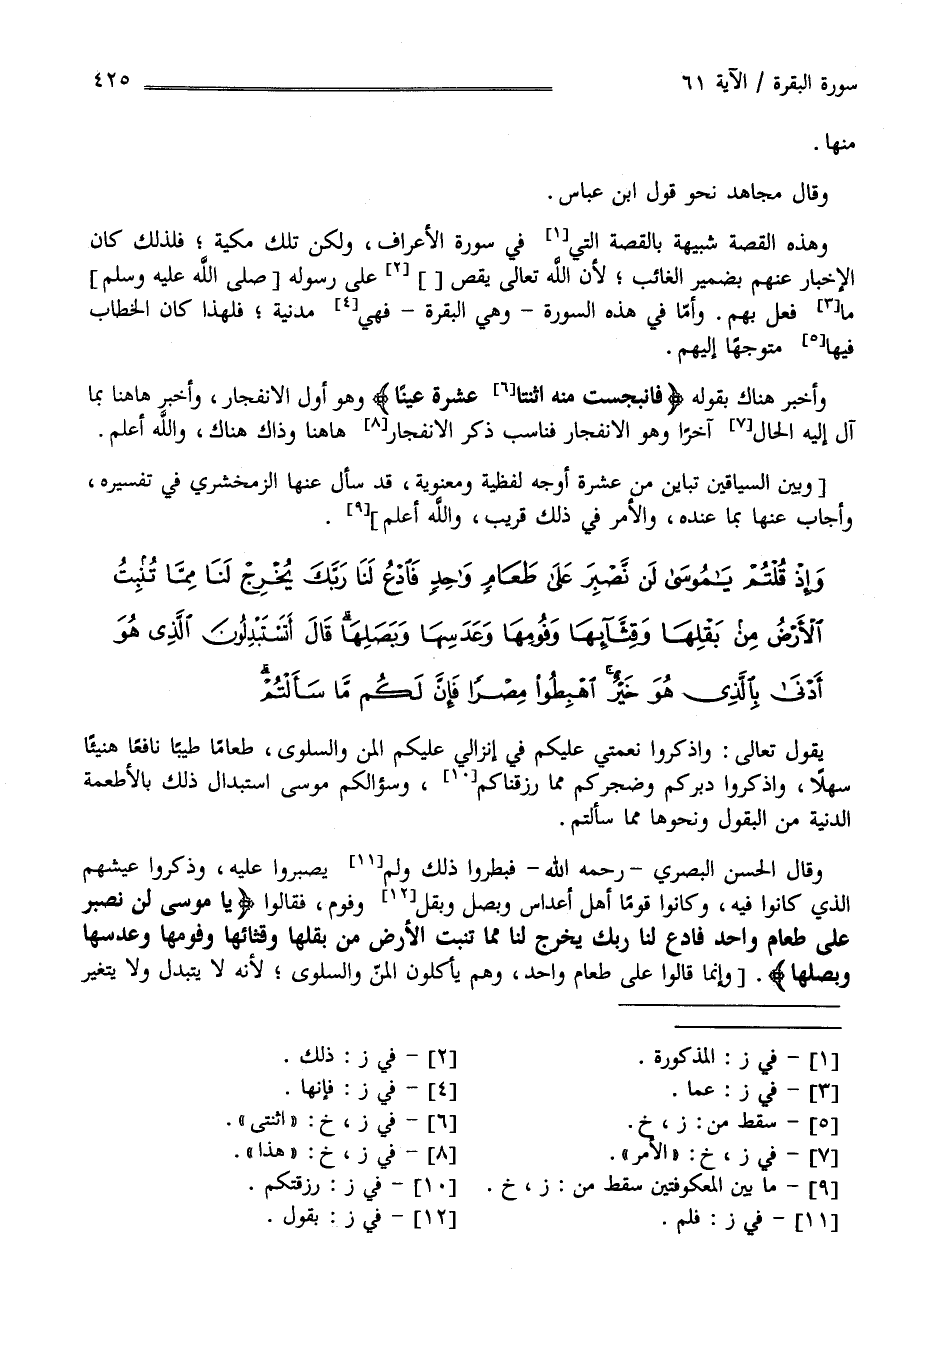 سورة البقرة / الآية ٦١ ٤٢٥
منها .
وقال مجاهد نحو قول ابن عباس .
وهذه القصة شبيهة بالقصة التي[١] في سورة الأعراف ، ولكن تلك مكية ؛ فلذلك كان
الإخبار عنهم بضمير الغائب ؛ لأن اللَّه تعالى يقص [ ] [٢] على رسوله [ صلى اللَّه عليه وسلم ]
ما[٣] فعل بهم . وأمّا في هذه السورة – وهي البقرة – فهي[٤] مدنية ؛ فلهذا كان الخطاب
فيها[٥] متوجهًا إليهم .
وأخبر هناك بقوله ﴿ فانبجست منه اثنتا[٦] عشرة عينًا ﴾ وهو أول الانفجار ، وأخبر هاهنا بما
آل إليه الحال[٧] آخرًا وهو الانفجار فناسب ذكر الانفجار[٨] هاهنا وذاك هناك ، واللَّه أعلم .
[ وبين السياقين تباين من عشرة أوجه لفظية ومعنوية ، قد سأل عنها الزمخشري في تفسيره ،
وأجاب عنها بما عنده ، والأمر في ذلك قريب ، واللَّه أعلم ][٩] .
وَإِذْ قُلْتُمْ يَـٰمُوسَىٰ لَن نَّصْبِرَ عَلَىٰ طَعَامٍ وَٰحِدٍ فَٱدْعُ لَنَا رَبَّكَ يُخْرِجْ لَنَا مِمَّا تُنۢبِتُ
ٱلْأَرْضُ مِنۢ بَقْلِهَا وَقِثَّآئِهَا وَفُومِهَا وَعَدَسِهَا وَبَصَلِهَا ۖ قَالَ أَتَسْتَبْدِلُونَ ٱلَّذِى هُوَ
أَدْنَىٰ بِٱلَّذِى هُوَ خَيْرٌ ۚ ٱهْبِطُوا۟ مِصْرًا فَإِنَّ لَكُم مَّا سَأَلْتُمْ ۗ
يقول تعالى : واذكروا نعمتي عليكم في إنزالي عليكم المن والسلوى ، طعامًا طيبًا نافعًا هنيئًا
سهلًا ، واذكروا دبركم وضجركم مما رزقناكم[١٠] ، وسؤالكم موسى استبدال ذلك بالأطعمة
الدنية من البقول ونحوها مما سألتم .
وقال الحسن البصري – رحمه الله – فبطروا ذلك ولم[١١] يصبروا عليه ، وذكروا عيشهم
الذي كانوا فيه ، وكانوا قومًا أهل أعداس وبصل وبقل[١٢] وفوم ، فقالوا ﴿ يا موسى لن نصبر
على طعام واحد فادع لنا ربك يخرج لنا مما تنبت الأرض من بقلها وقثائها وفومها وعدسها
وبصلها ﴾ . [ وإنما قالوا على طعام واحد ، وهم يأكلون المنّ والسلوى ؛ لأنه لا يتبدل ولا يتغير
[١] – في ز : المذكورة . [٢] – في ز : ذلك .
[٣] – في ز : عما . [٤] – في ز : فإنها .
[٥] – سقط من : ز ، خ . [٦] – في ز ، خ : « اثنتى » .
[٧] – في ز ، خ : « الأمر » . [٨] – في ز ، خ : « هذا » .
[٩] – ما بين المعكوفتين سقط من : ز ، خ . [١٠] – في ز : رزقتكم .
[١١] – في ز : فلم . [١٢] – في ز : بقول .